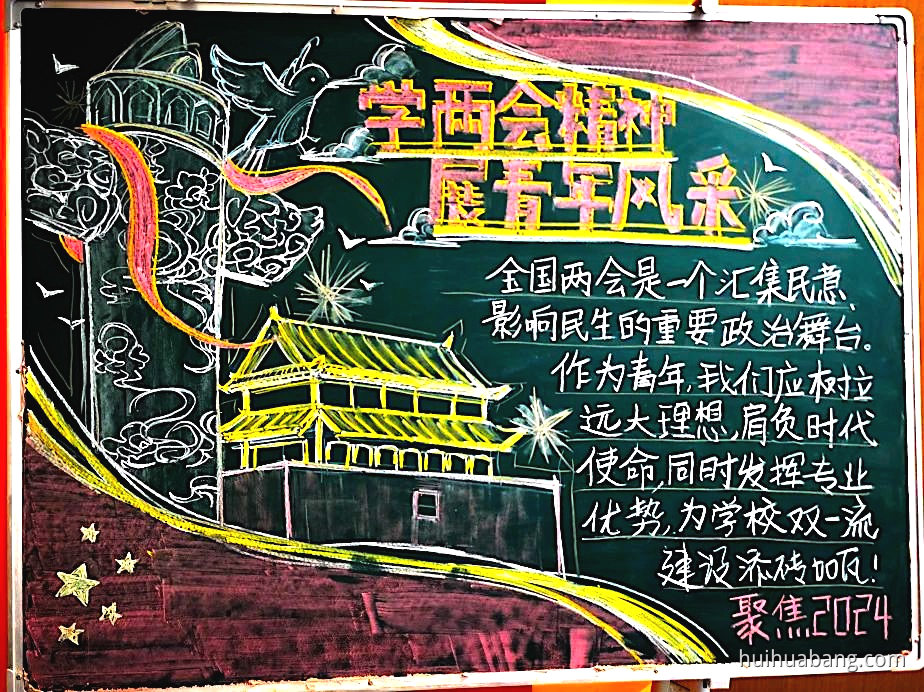 学两会精神
展青年风采
全国两会是一个汇集民意、
影响民生的重要政治舞台。
作为青年,我们应树立
远大理想,肩负时代
使命,同时发挥专业
优势,为学校双一流
建设添砖加瓦!
聚焦2024
huihuabang.com